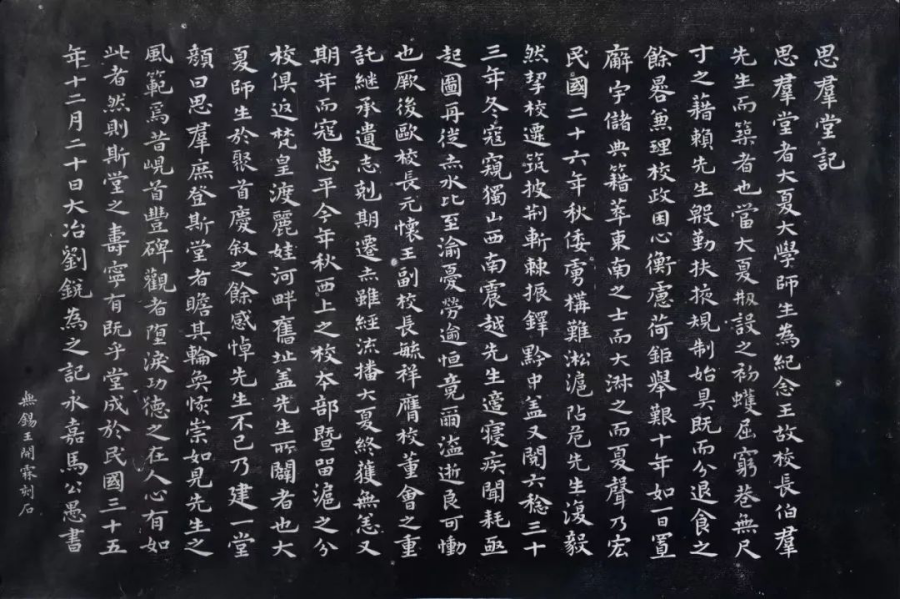 思羣堂記
思羣堂者大夏大學師生為紀念王故校長伯羣
先生而築者也當大夏剏設之初蠖屈窮巷無尺
寸之藉賴先生殷勤扶掖規制始具既而公退食之
餘晷兼理校政困心衡慮荷鉅舉艱十年如一日置
廨宇儲典籍萃東南之士而大淑之而夏聲乃宏
民國二十六年秋倭虜構難淞滬阽危先生溭毅
然挈校遷筑披荆斬棘振鐸黔中盖又閱六稔三十
三年冬寇窺獨山西南震越先生適寢疾聞耗亟
起圖再徙赤水比至渝憂勞逾恒竟爾溘逝良可慟
也厥後歐校長元懷王副校長毓祥膺校董會之重
託繼承遺志剋期遷赤雖經流播大夏終獲無恙又
期年而寇患平今年秋西上之校本部暨留滬之分
校俱返梵皇渡麗娃河畔舊址盖先生所闢者也大
夏師生於聚首慶叙之餘感悼先生不已乃建一堂
顏曰思羣庶登斯堂者瞻其輪奐恢崇如見先生之
風範焉昔峴首豐碑觀者墮淚功德之在人心有如
此者然則斯堂之壽寧有既乎堂成於民國三十五
年十二月二十日大冶劉銳為之記永嘉馬公愚書
無錫王開霖刻石